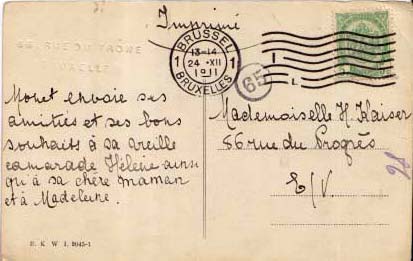 Imprimé
RUE DU TRÔNE
BRUSSEL
1 13-14 1
24 • XII
1911
BRUXELLES
65
Monet envoie ses
amitiés et ses bons
souhaits à sa vieille
camarade Hélène ainsi
qu'à sa chère maman
et à Madeleine.
Mademoiselle H. Kaiser
86 rue du Progrès
E/V.
B. K. W. I. 3045-1